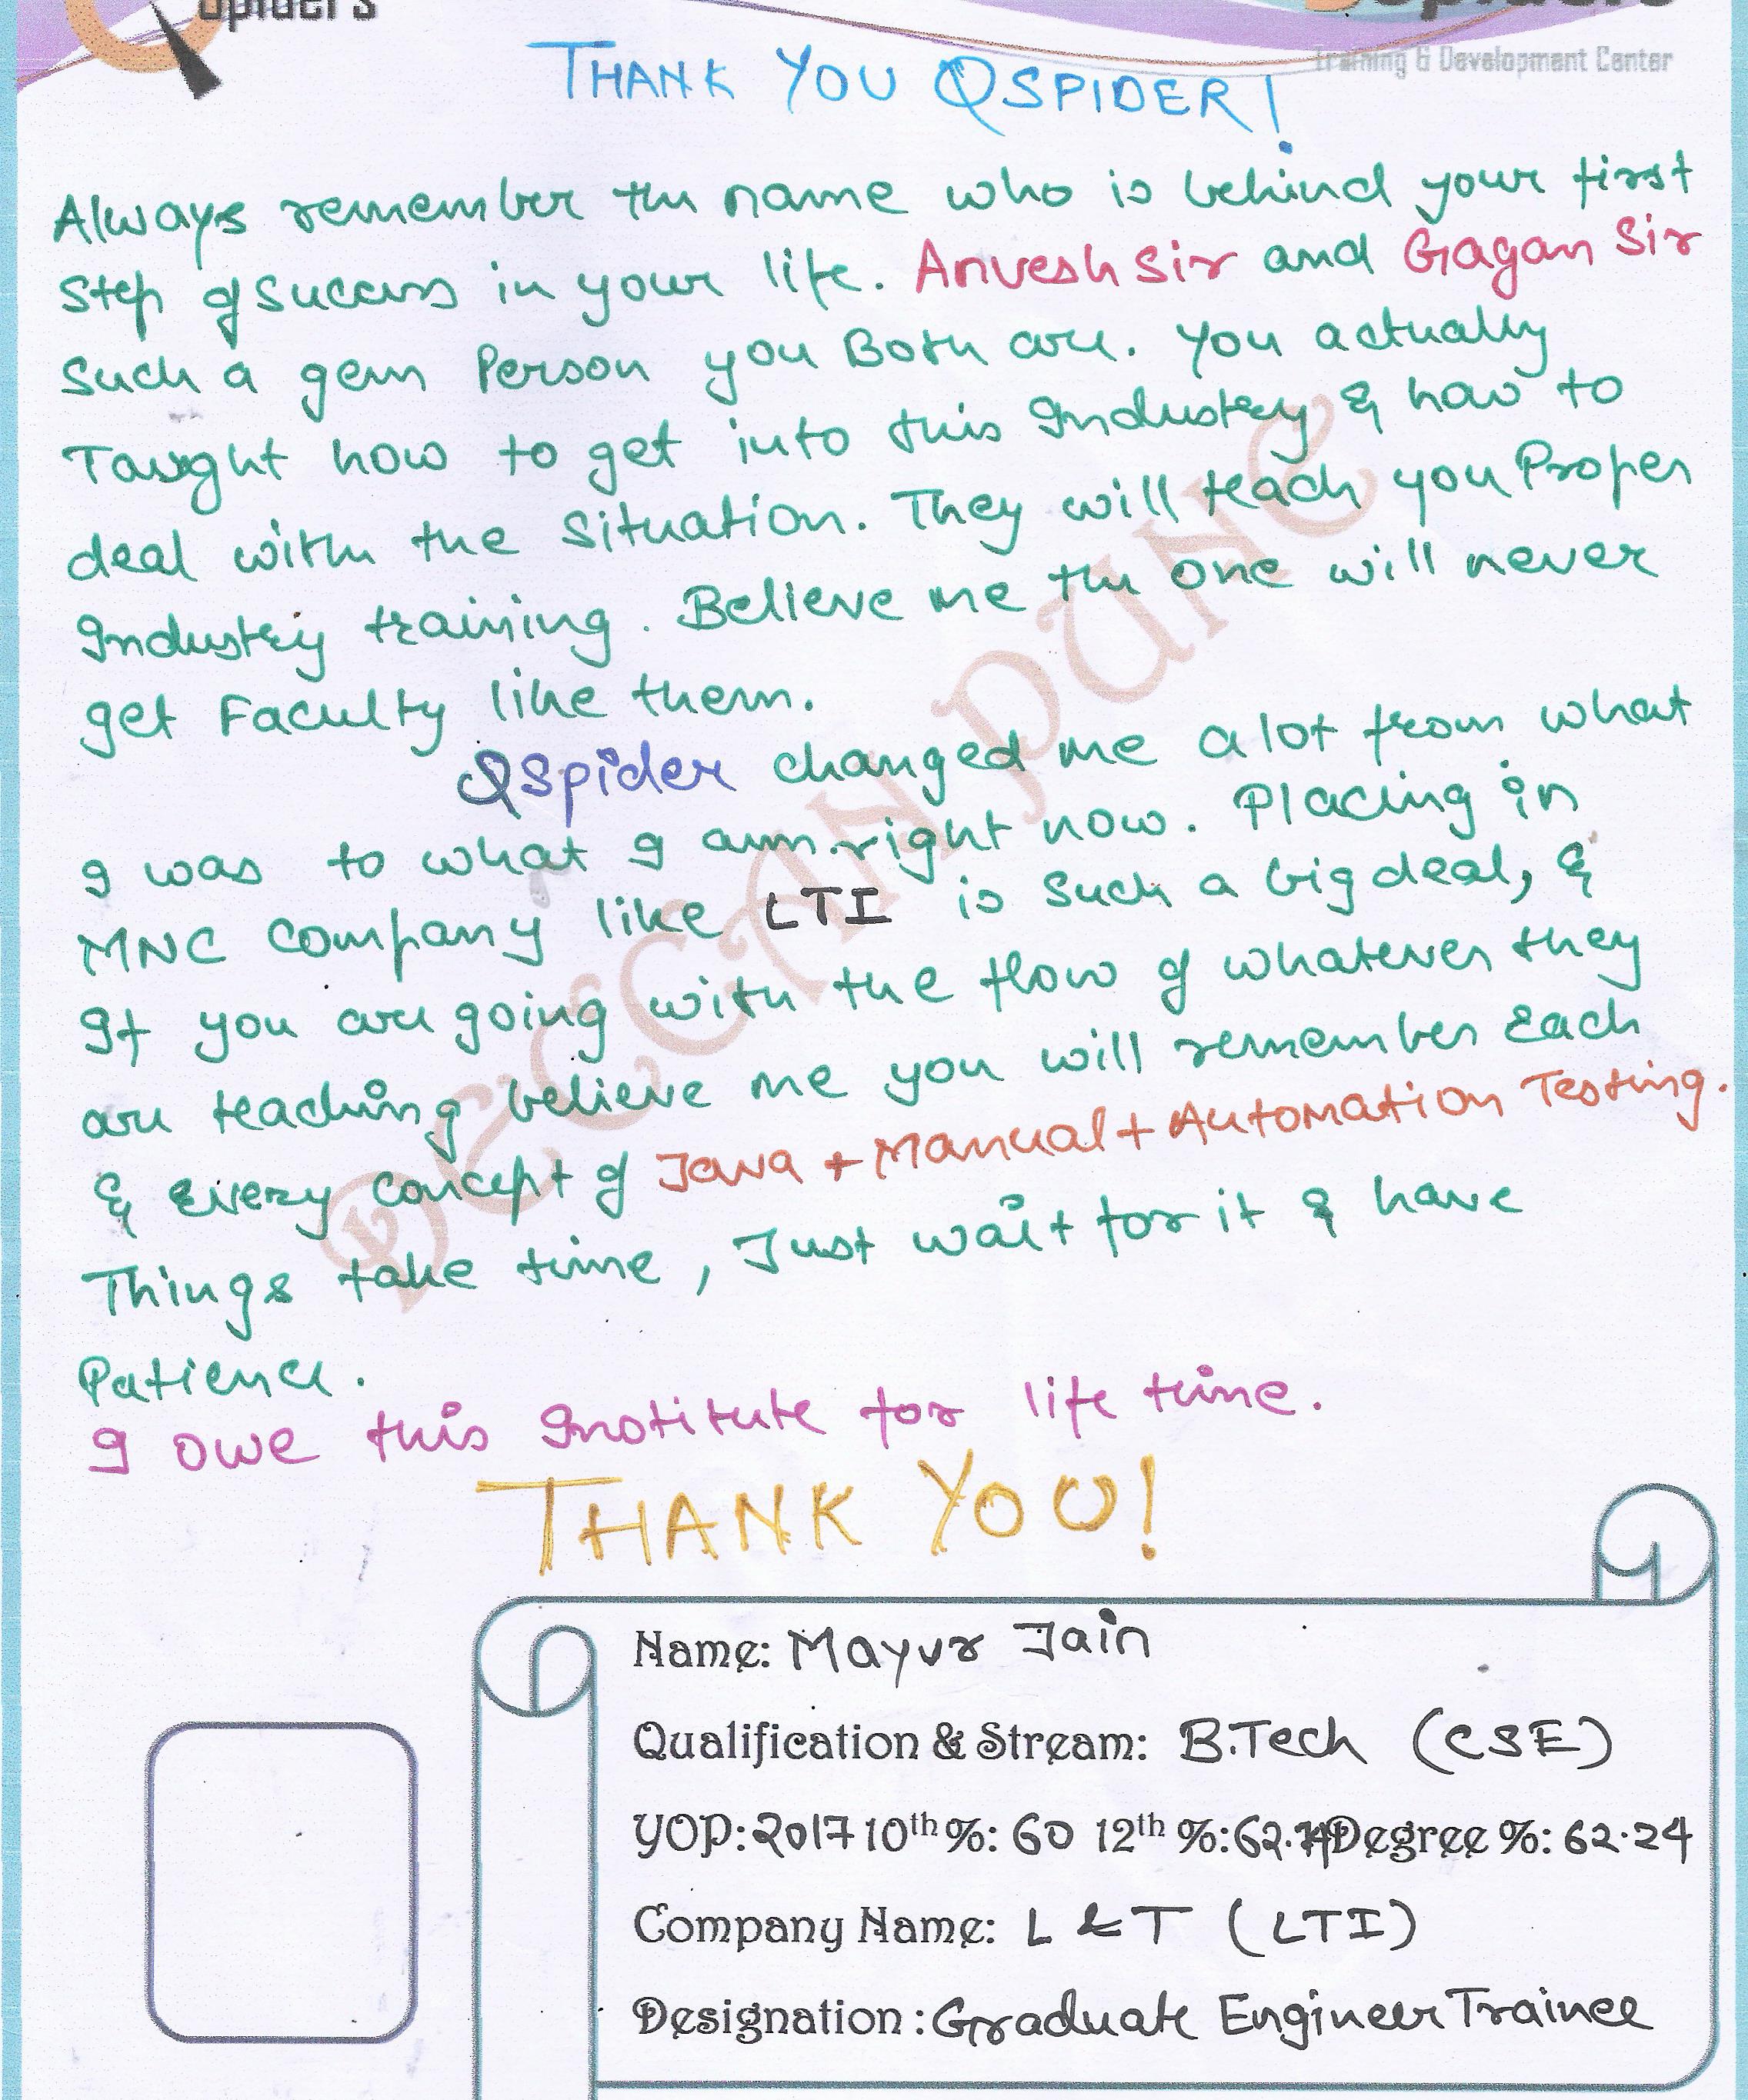 Spiders
Training & Development Center
THANK YOU QSPIDER!
Always remember the name who is behind your first
Step of Success in your life. Anvesh Sir and Gagan Sir
Such a gem Person you Both are. You actually
Taught how to get into this Industry & how to
deal with the Situation. They will teach you Proper
Industry training. Believe me the one will never
get Faculty like them.
QSpider changed me a lot from what
I was to what I am right now. Placing in
MNC Company like LTI is Such a big deal, &
If you are going with the flow of whatever they
are teaching believe me you will remember Each
& Every concept of Java + Manual + Automation Testing.
Things take time, Just wait for it & have
Patience.
I owe this Institute for life time.
THANK YOU!
DECCAN PUNE
Name: Mayur Jain
Qualification & Stream: B.Tech (CSE)
YOP: 2017 10th %: 60 12th %: Degree %: 62.24
Company Name: L & T (LTI)
Designation : Graduate Engineer Trainee